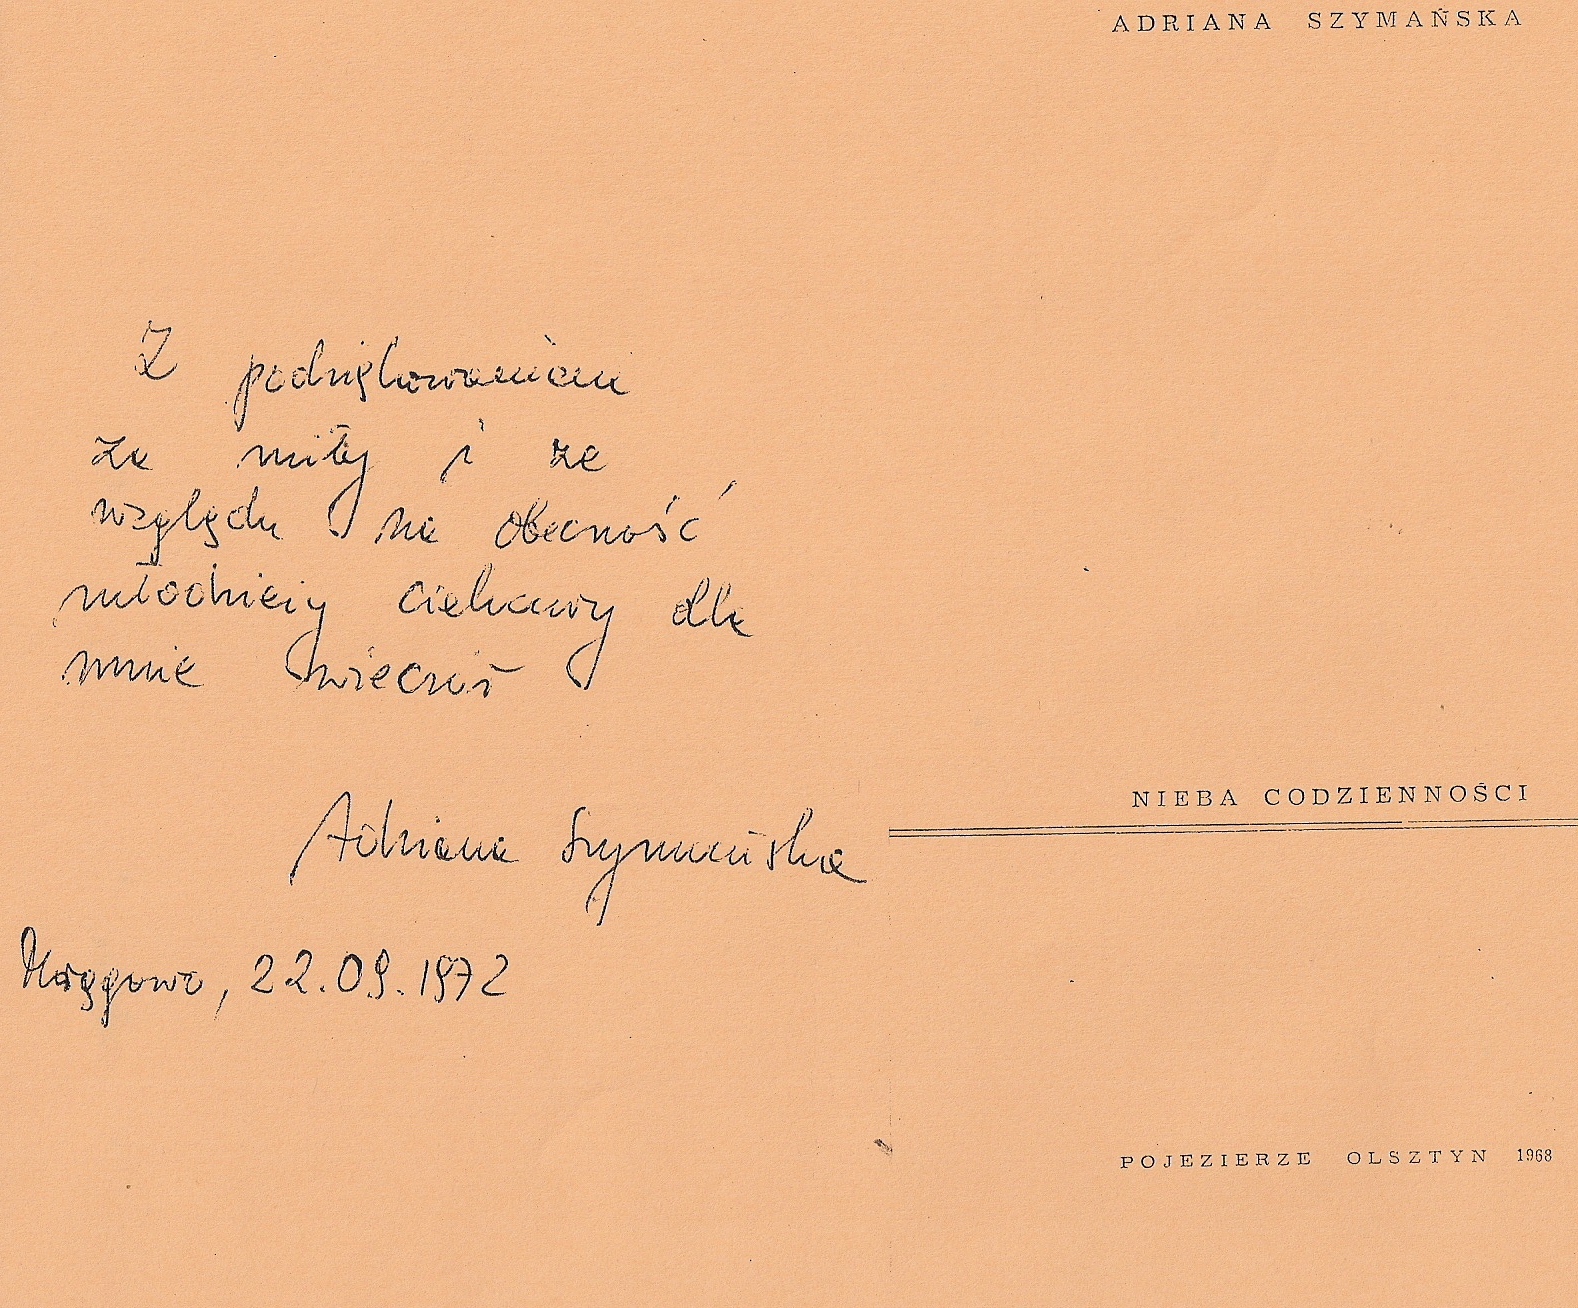 ADRIANA SZYMAŃSKA
Z podziękowaniem
za miły i ze
względu na obecność
młodzieży ciekawy dla
mnie wieczór
Adriana Szymańska
Mrągowo, 22.09.1972
NIEBA CODZIENNOŚCI
POJEZIERZE OLSZTYN 1968